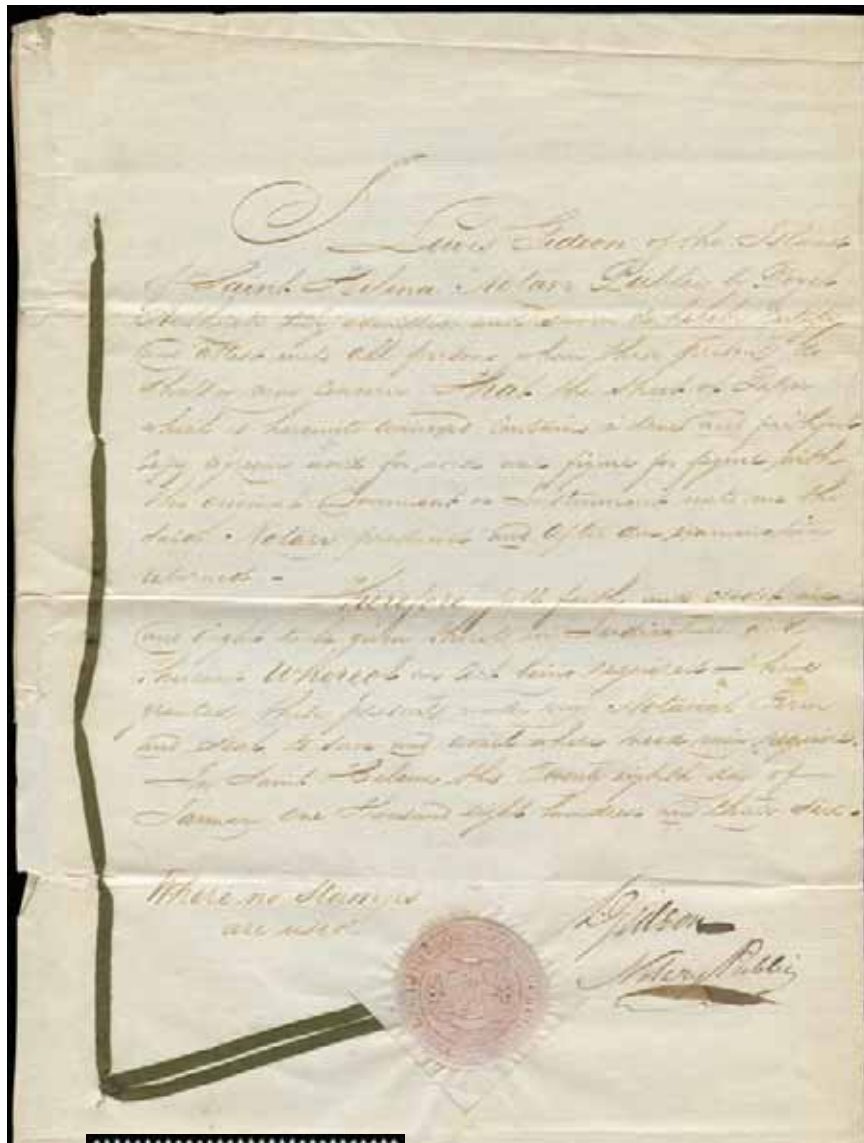 I Lewis Gideon of the Island
of Saint Helena Notary Public by
duly admitted and sworn do hereby Certify
and attest unto all persons whom these presents do
shall or may concern That the sheet of Paper
which is hereunto annexed contains a true and faithful
Copy agrees word for word and figure for figure with
the original Document or Instrument unto me the
said Notary produced and after due examination
returned -
Therefore full faith and credit are
and ought to be given thereto in Judicature and
thereout Whereof an act being required I have
granted these presents under my Notarial Form
and Seal to serve and avail where need may require.
In Saint Helena this Twenty eighth day of
January One thousand eight hundred and thirty
Where no Stamps
are used.
L Gideon
Notary Public